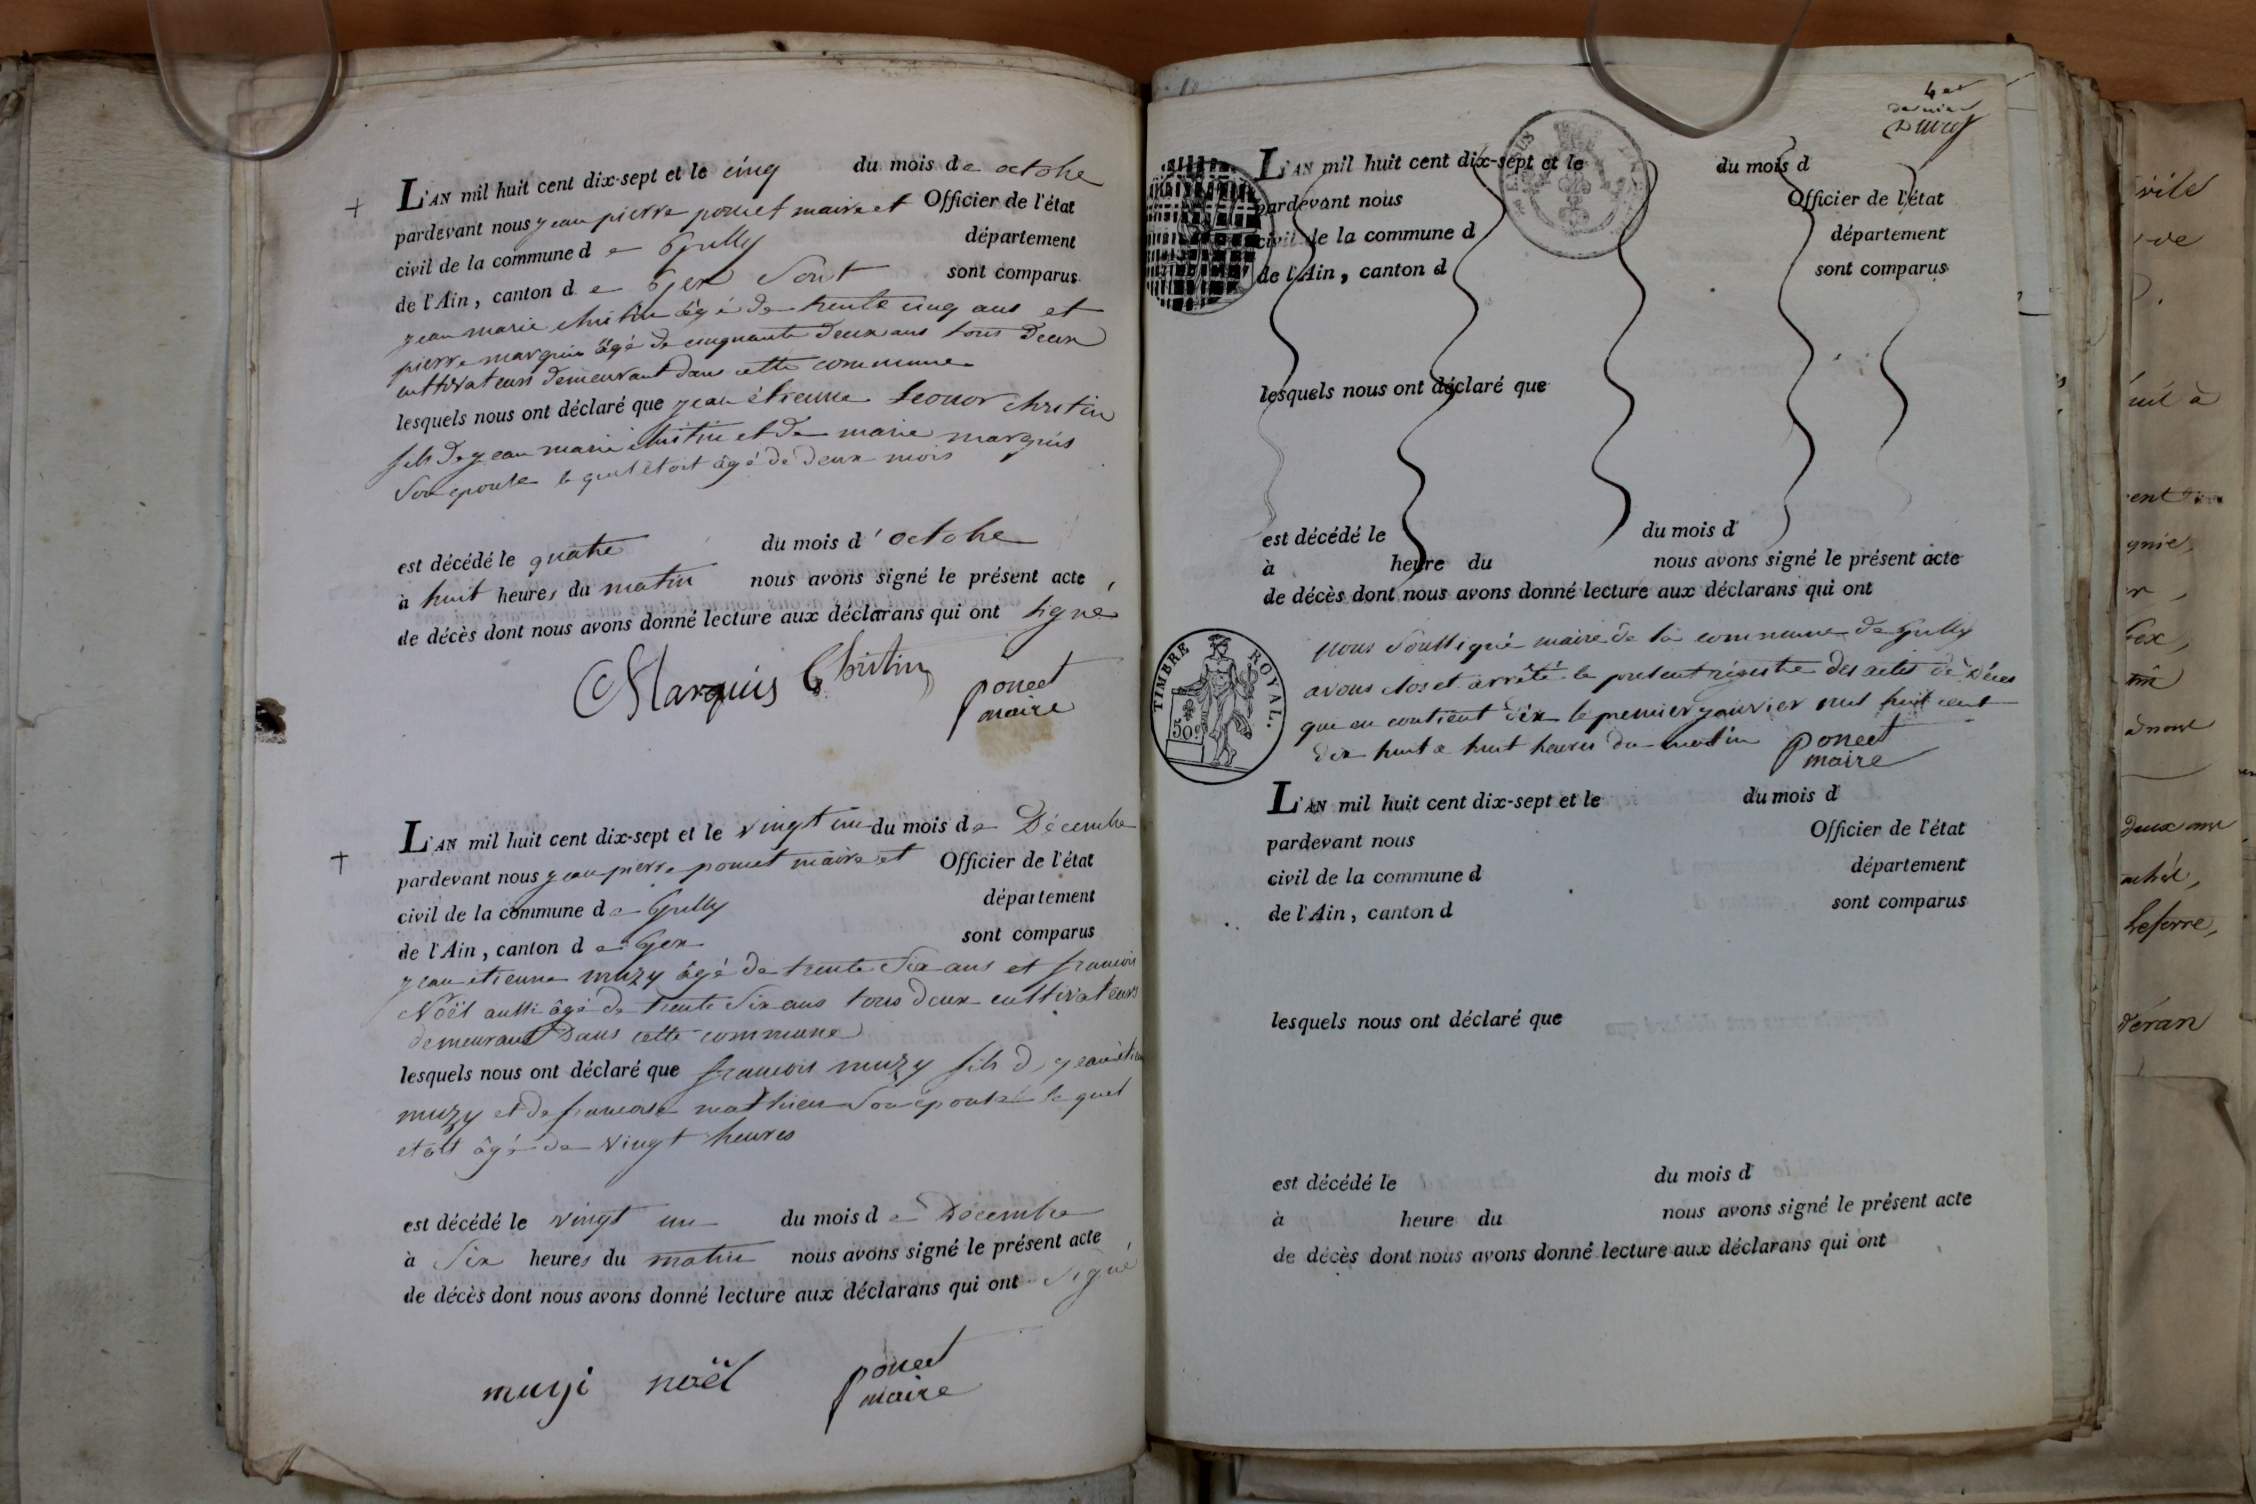 L'AN mil huit cent dix-sept et le cinq du mois de octobre
pardevant nous jean pierre poncet maire et Officier de l'état
civil de la commune de Grilly département
de l'Ain, canton de Gex Sont sont comparus
jean marie christin âgé de trente cinq ans et
pierre marquis âgé de cinquante deux ans tous deux
cultivateurs demeurant dans cette commune
lesquels nous ont déclaré que jean étienne Leonor christin
fils de jean marie christin et de marie marquis
Son epouse le quel étoit âgé de deux mois
est décédé le quatre du mois d'octobre
à huit heures du matin nous avons signé le présent acte,
de décès dont nous avons donné lecture aux déclarans qui ont signé
Marquis Christin poncet
maire
L'AN mil huit cent dix-sept et le vingt un du mois de Décembre
pardevant nous jean pierre poncet maire et Officier de l'état
civil de la commune de Grilly département
de l'Ain, canton de Gex sont comparus
jean etienne muzy âgé de trente Six ans et francois
Noël aussi âgé de trente Six ans tous deux cultivateurs
demeurant Dans cette commune
lesquels nous ont déclaré que francois muzy fils de jean etienne
muzy et de francoise mathieu Son epouse le quel
etoit âgé de vingt heures
est décédé le vingt un du mois de Décembre
à Six heures du matin nous avons signé le présent acte,
de décès dont nous avons donné lecture aux déclarans qui ont signé
muzi noël poncet
maire
4 et
dernier
L'AN mil huit cent dix-sept et le du mois d
pardevant nous Officier de l'état
civil de la commune d département
de l'Ain, canton d sont comparus
lesquels nous ont déclaré que
est décédé le du mois d
à heure du nous avons signé le présent acte
de décès dont nous avons donné lecture aux déclarans qui ont
TIMBRE ROYAL.
50c
nous Soussigné maire de la commune de Grilly
avons clos et arrêté le present régistre des actes de Décès
qui en contient dix le premier janvier mil huit cent
dix huit a huit heures du matin poncet
maire
L'AN mil huit cent dix-sept et le du mois d
pardevant nous Officier de l'état
civil de la commune d département
de l'Ain, canton d sont comparus
lesquels nous ont déclaré que
est décédé le du mois d
à heure du nous avons signé le présent acte
de décès dont nous avons donné lecture aux déclarans qui ont